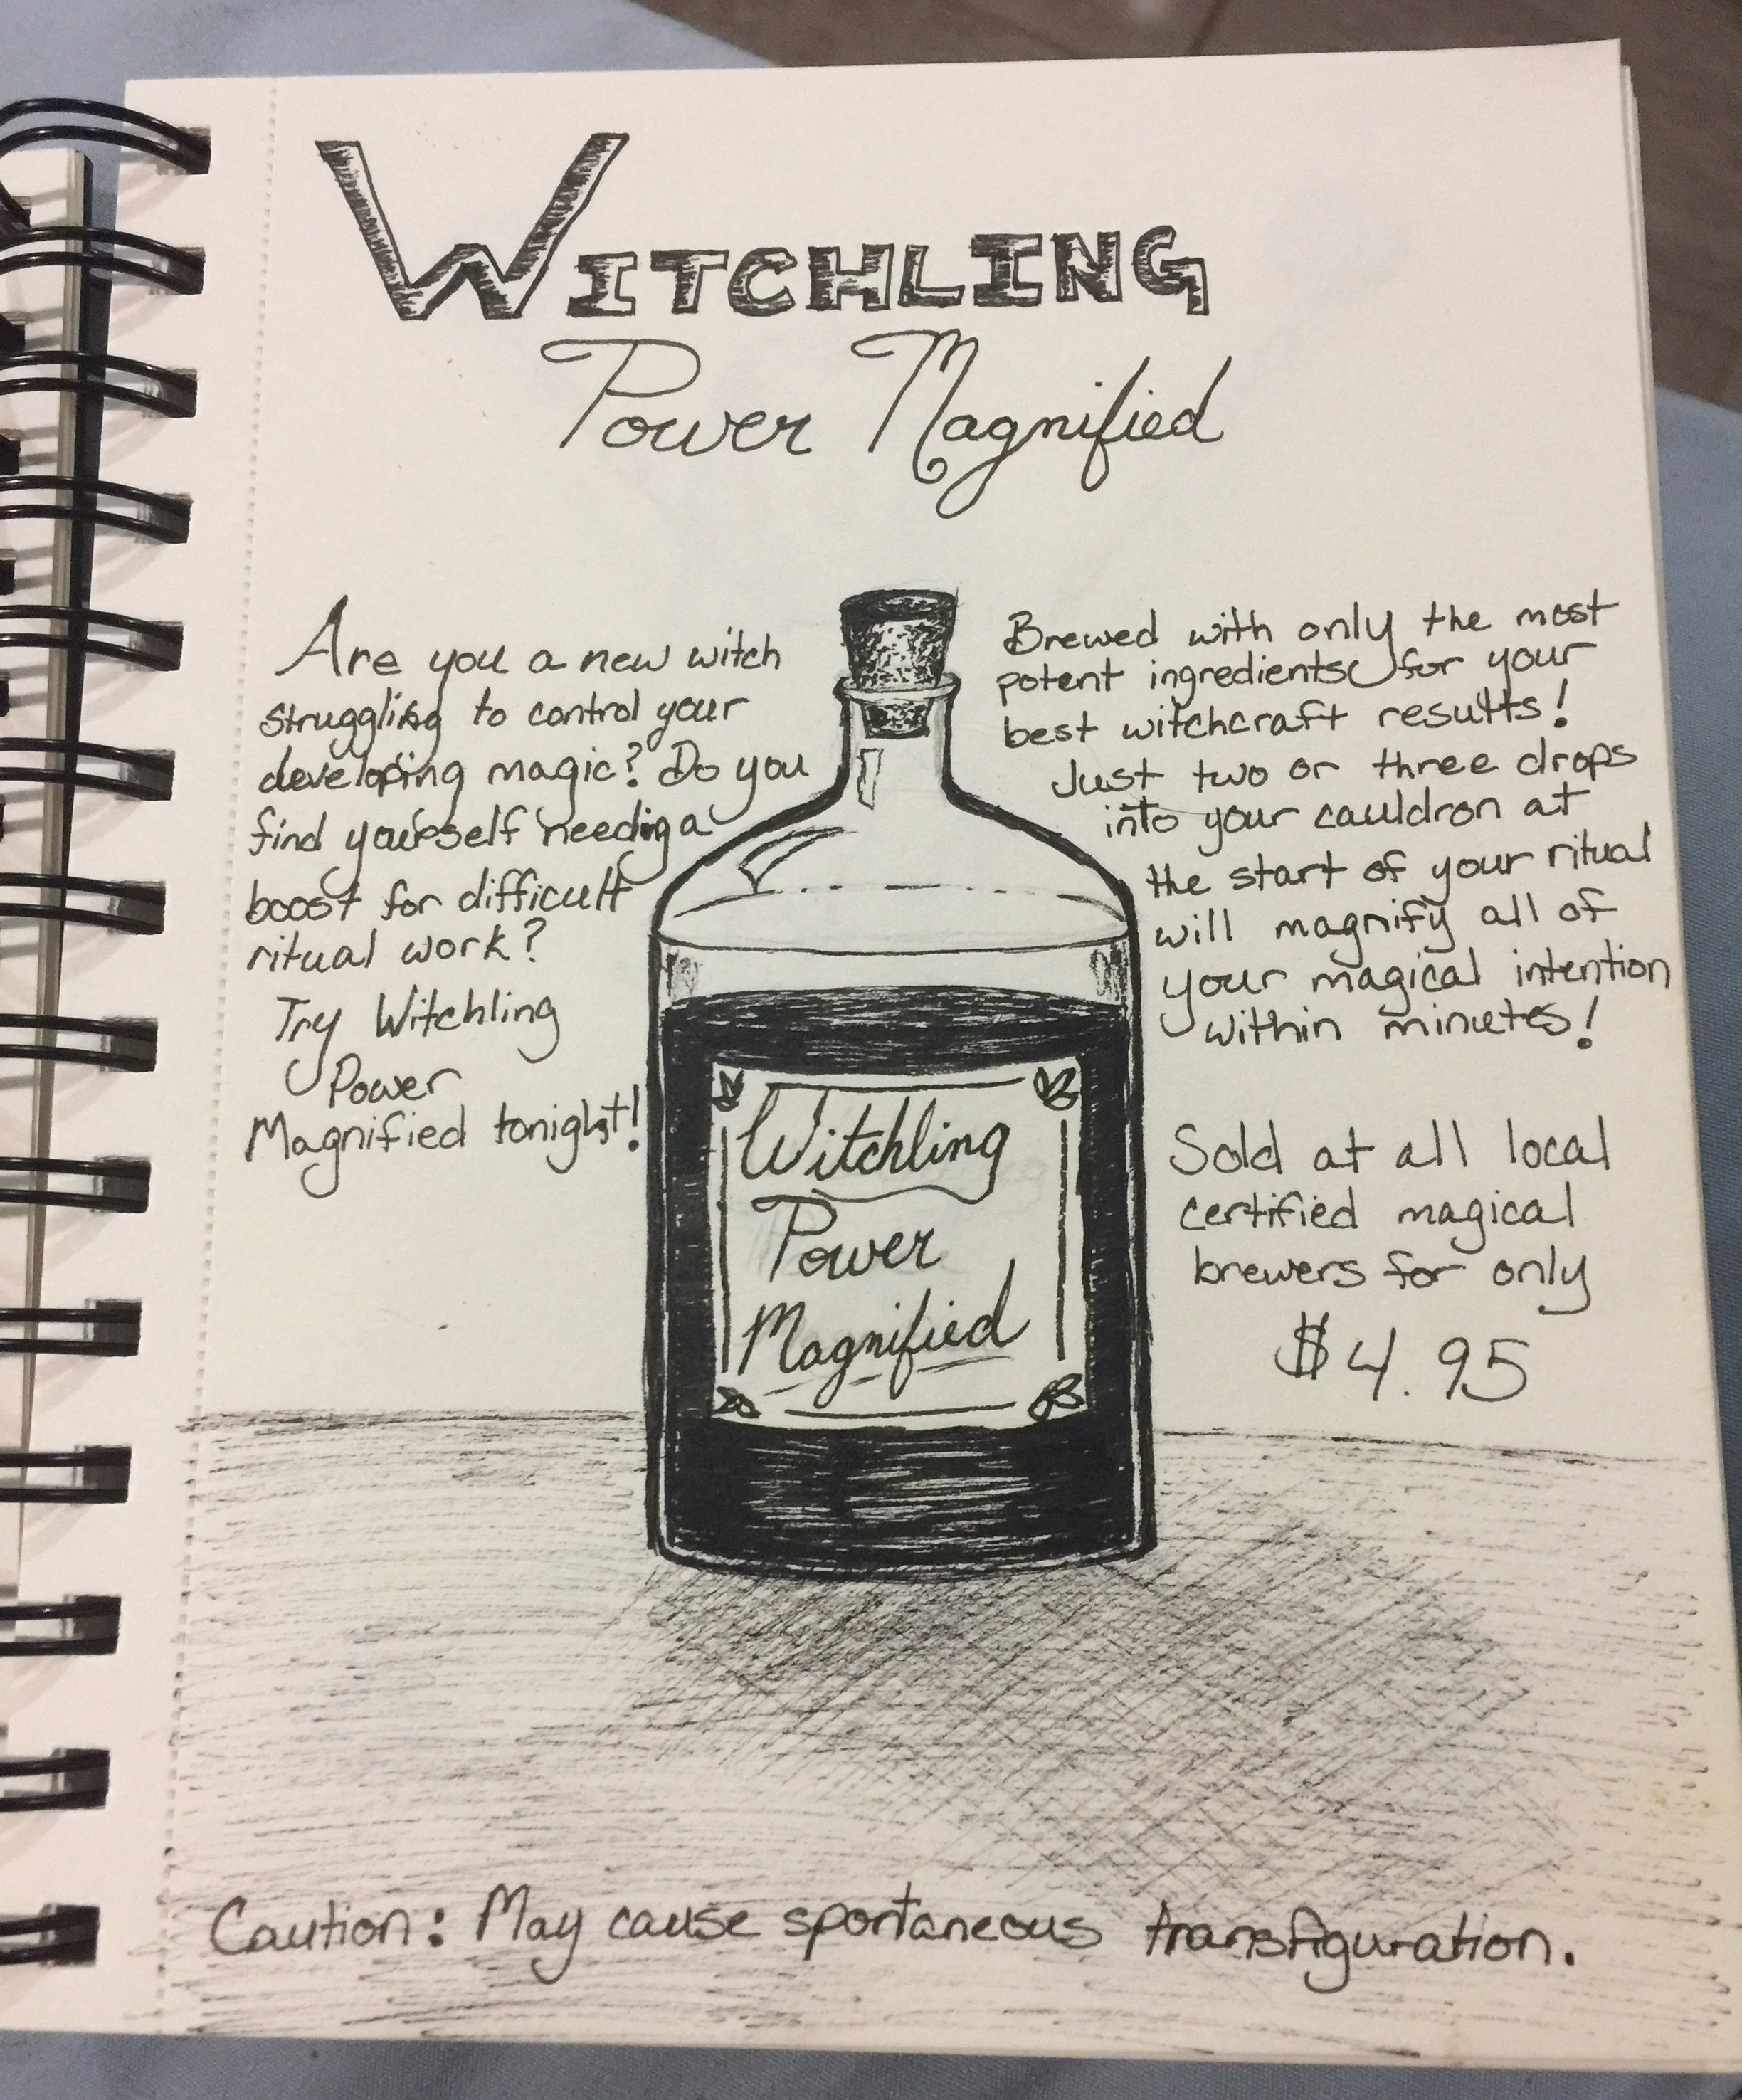 WITCHLING
Power Magnified
Are you a new witch
struggling to control your
developing magic? Do you
find yourself needing a
boost for difficult
ritual work?
Try Witchling
Power
Magnified tonight!
Brewed with only the most
potent ingredients for your
best witchcraft results!
Just two or three drops
into your cauldron at
the start of your ritual
will magnify all of
your magical intention
within minutes!
Sold at all local
certified magical
brewers for only
$4.95
Witchling
Power
Magnified
Caution: May cause spontaneous transfiguration.